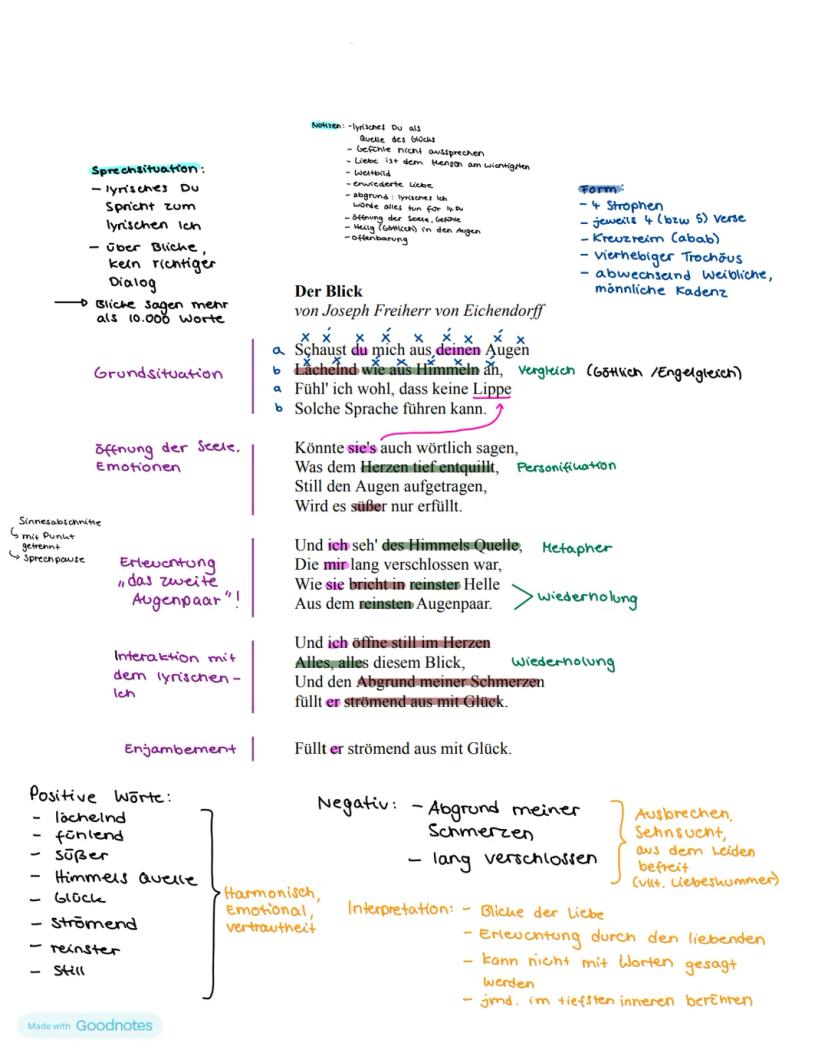 Notizen: -lyrisches Du als
Quelle des Glücks
- Gefühle nicht aussprechen
- Liebe ist dem Menschen am wichtigsten
- Weltbild
- erwiederte Liebe
- abgrund: lyrisches Ich
würde alles tun für ly. Du
- öffnung der Seele, Gefühle
- Heilig (Göttlich) in den Augen
- Offenbarung
Sprechsituation:
- lyrisches Du
Spricht zum
lyrischen Ich
- über Blicke,
kein richtiger
Dialog
→ Blicke sagen mehr
als 10.000 Worte
Form:
- 4 Strophen
- jeweils 4 (bzw 5) Verse
- Kreuzreim (abab)
- vierhebiger Trochäus
- abwechselnd Weibliche,
männliche Kadenz
Der Blick
von Joseph Freiherr von Eichendorff
Grundsituation
a Schaust du mich aus deinen Augen
b Lächelnd wie aus Himmeln an, Vergleich (Göttlich /Engelgleich)
a Fühl' ich wohl, dass keine Lippe
b Solche Sprache führen kann.
öffnung der Seele,
Emotionen
Könnte sie's auch wörtlich sagen,
Was dem Herzen tief entquillt, Personifikation
Still den Augen aufgetragen,
Wird es süßer nur erfüllt.
Sinnesabschnitte
↳ mit Punkt
getrennt
↳ Sprechpause
Erleuchtung
„das zweite
Augenpaar"!
Und ich seh' des Himmels Quelle, Metapher
Die mir lang verschlossen war,
Wie sie bricht in reinster Helle
Aus dem reinsten Augenpaar.
Wiederholung
Interaktion mit
dem lyrischen-
Ich
Und ich öffne still im Herzen
Alles, alles diesem Blick, Wiederholung
Und den Abgrund meiner Schmerzen
füllt er strömend aus mit Glück.
Enjambement
Füllt er strömend aus mit Glück.
Positive Wörte:
- lächelnd
- fühlend
- süßer
- Himmels Quelle
- Glück
- Strömend
- reinster
- Still
Harmonisch,
Emotional,
vertrautheit
Negativ: - Abgrund meiner
Schmerzen
- lang verschlossen
Ausbrechen,
Sehnsucht,
aus dem Leiden
befreit
(vllt. Liebeskummer)
Interpretation: - Blicke der Liebe
- Erleuchtung durch den liebenden
- kann nicht mit Worten gesagt
werden
- jmd. im tiefsten inneren berühren
Made with Goodnotes